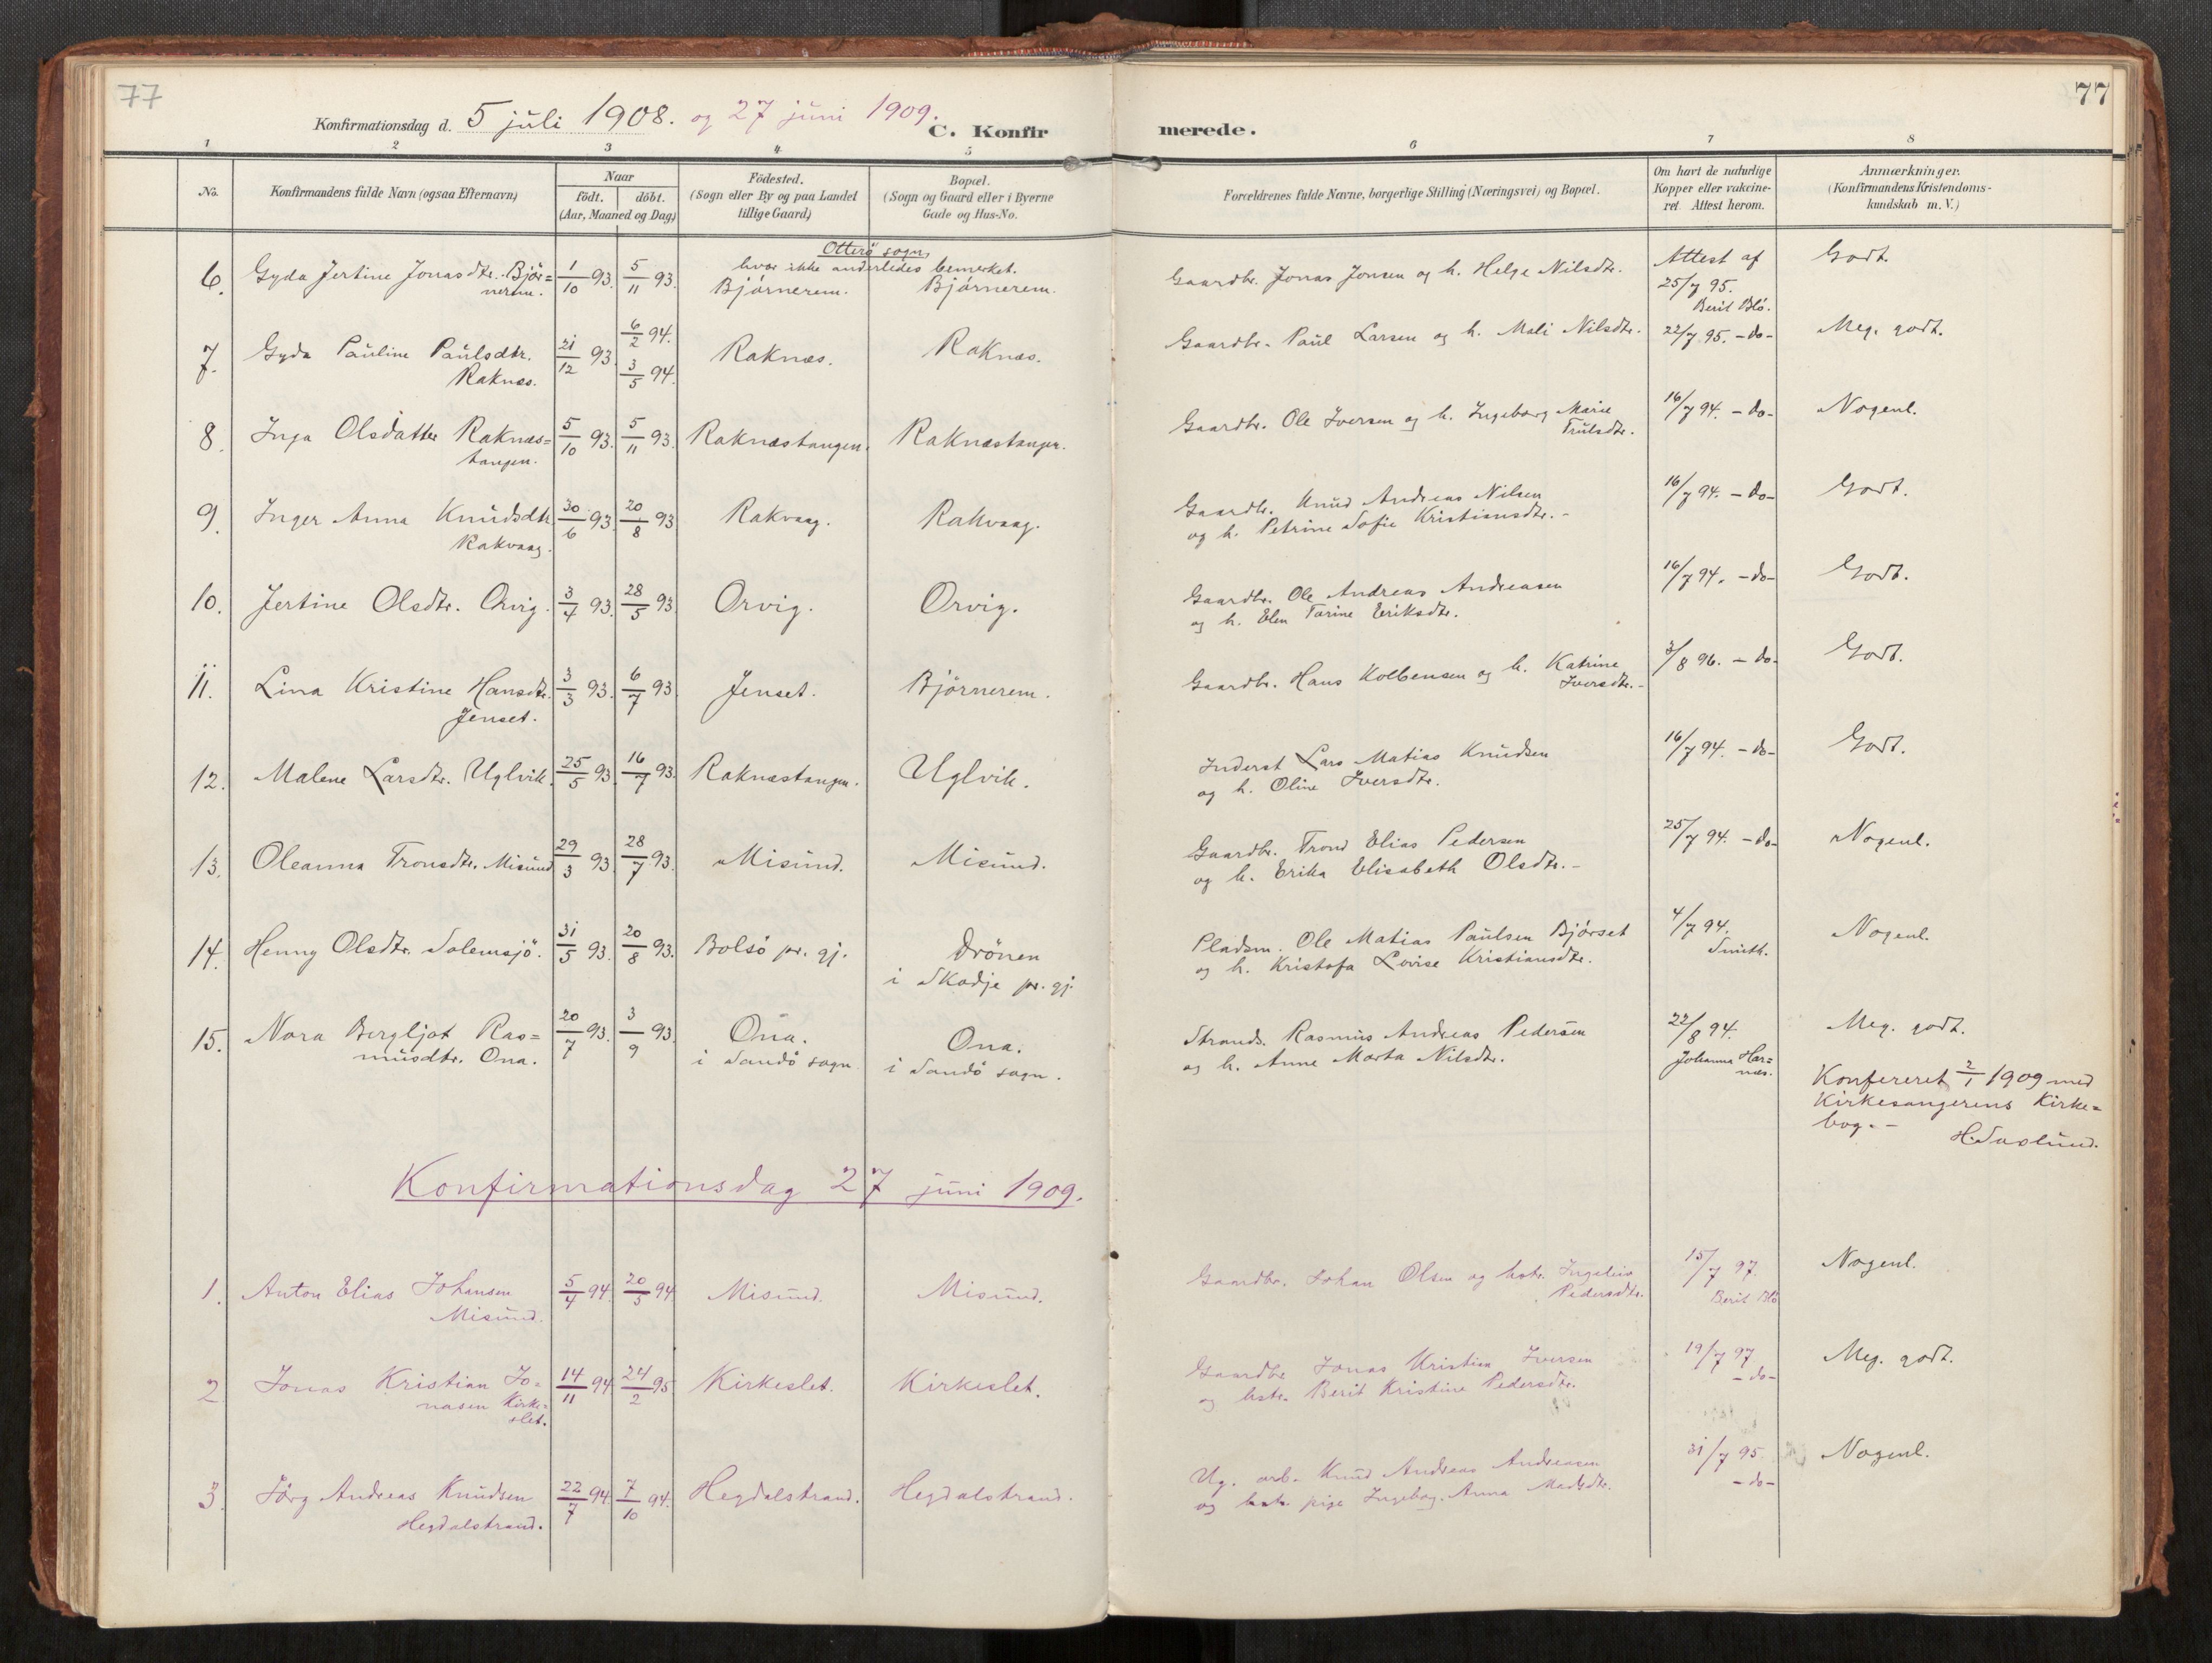 77
77
Konfirmationsdag d. 5 juli 1908. og 27 juni 1909.
C. Konfirmerede.
1 2 3 4 5 6 7 8
No.
Konfirmandens fulde Navn (ogsaa Efternavn)
Naar
født. døbt.
(Aar, Maaned og Dag)
Födested.
(Sogn eller By og paa Landet
tillige Gaard)
Bopæl.
(Sogn og Gaard eller i Byerne
Gade og Hus-No.
Forældrenes fulde Navne, borgerlige Stilling (Næringsvei) og Bopæl.
Om havt de naturlige
Kopper eller vakcine-
ret. Attest herom.
Anmærkninger.
(Konfirmandens Kristendoms-
kundskab m. V.)
Otterö sogn,
hvor ikke anderledes bemerket.
6. Gyda Jertine Jonasdtr. Björ=
nerem.
1/10 93. 5/11 93. Björnerem. Björnerem.
Gaardbr. Jonas Jonsen og h. Helge Nilsdtr.
Attest af
25/7 95.
Berit Blö.
Godt.
7. Gyda Pauline Paulsdtr.
Raknæs.
21/12 93. 6/2 94.
3/5 94.
Raknæs. Raknæs.
Gaardbr. Paul Larsen og h. Mali Nilsdtr. 22/7 95. -do- Meg. godt.
8. Inga Olsdatter Raknæs=
tangen.
5/10 93. 5/11 93. Raknæstangen. Raknæstangen.
Gaardbr. Ole Iversen og h. Ingeborg Marie
Trulsdtr.
16/7 94. -do- Nogenl.
9. Inger Anna Knudsdtr.
Rakvaag.
30/6 93. 20/8 93 Rakvaag. Rakvaag.
Gaardbr. Knud Andreas Nilsen
og h. Petrine Sofie Kristiansdtr. -
16/7 94. -do- Godt.
10. Jertine Olsdtr. Orvig. 3/4 93. 28/5 93 Orvig. Orvig.
Gaardbr. Ole Andreas Andreasen
og h. Elen Tarine Eriksdtr.
16/7 94. -do- Godt.
11. Lina Kristine Hansdtr.
Jenset.
3/3 93. 6/7 93 Jenset. Björnerem.
Gaardbr. Hans Kolbensen og h. Katrine
Iversdtr. -
3/8 96. -do- Godt.
12. Malene Larsdtr. Uglvik. 25/5 93. 16/7 93. Raknæstangen. Uglvik.
Inderst Lars Matias Knudsen
og h. Oline Iversdtr.
16/7 94. -do- Godt.
13. Oleanna Tronsdtr. Misund 29/3 93 28/7 93. Misund. Misund.
Gaardbr. Trond Elias Pedersen
og h. Erika Elisabeth Olsdtr. -
25/7 94. -do- Nogenl.
14. Henny Olsdtr. Solemsjö. 31/5 93. 20/8 93. Bolsö pr. gj. Drönen
i Skodje pr. gj.
Pladsm. Ole Matias Paulsen Björset
og h. Kristofa Lovise Kristiansdtr.
4/7 94.
Smith.
Nogenl.
15. Nora Bergljot Ras=
musdtr. Ona.
20/7 93. 3/9 93. Ona.
i Sandö sogn.
Ona.
i Sandö sogn.
Strands. Rasmus Andreas Pedersen
og h. Anne Marta Nilsdtr.
22/8 94.
Johanna Har=
næs.
Meg. godt.
Konfereret 2/1 1909 med
Kirkesangerens Kirke=
bog. -
H. Saslund.
Konfirmationsdag 27 juni 1909.
1. Anton Elias Johansen
Misund.
5/4 94. 20/5 94 Misund. Misund.
Gaardbr. Johan Olsen og hstr. Ingeleiv
Pedersdtr.
15/7 97.
Berit Blö
Nogenl.
2 Jonas Kristian Jo=
nasen Kirke=
slet.
14/11 94 24/2 95 Kirkeslet. Kirkeslet.
Gaardbr. Jonas Kristian Iversen
og hstr. Berit Kristine Pedersdtr.
19/7 97
-do-
Meg. godt.
3. Jörg Andreas Knudsen
Hegdalstrand.
22/7 94. 7/10 94. Hegdalstrand. Hegdalstrand.
Ug. arb. Knud Andreas Andreasen
og pige Ingebog. Anna
31/7 95.
-do-
Nogenl.